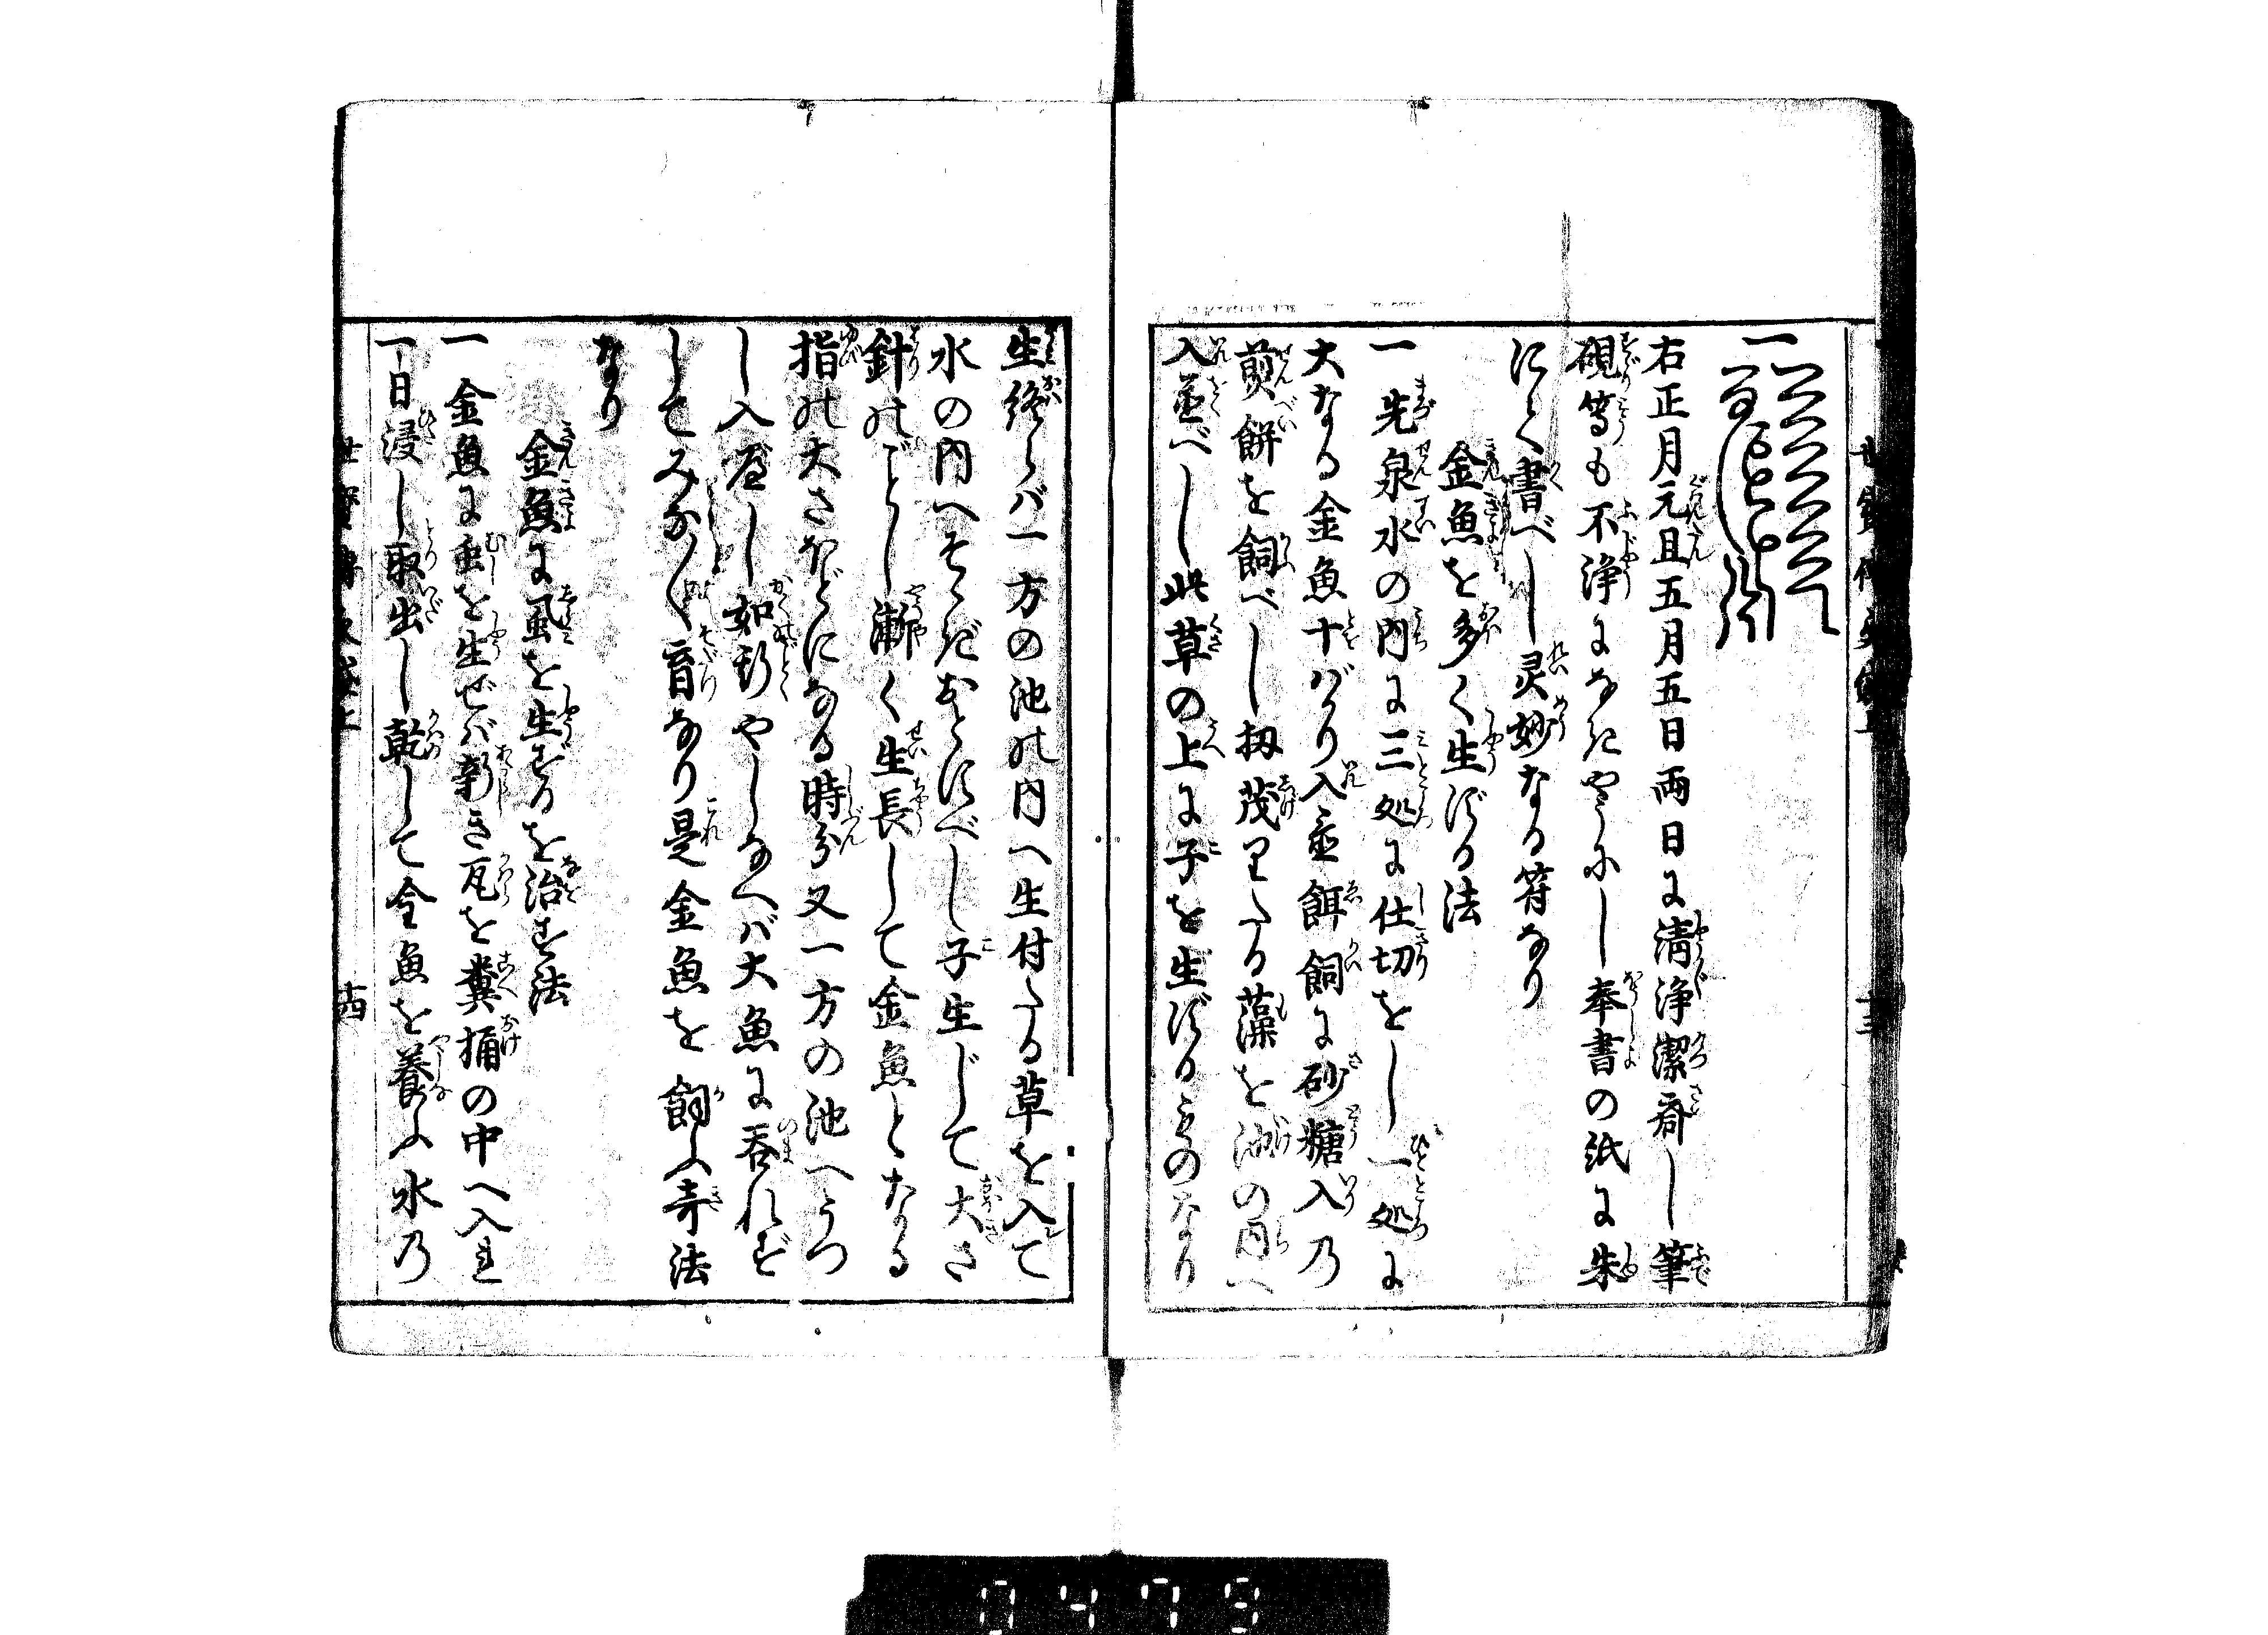 右正月元旦五月五日両日に清浄潔斎し筆
硯等も不浄になきやうにし奉書の紙に朱
にて書べし灵妙なる符なり
金魚を多く生ずる法
一先泉水の内に三処に仕切をし一処に
大なる金魚十ばかり入置餌飼に砂糖入の
煎餅を飼べし扨茂りたる藻を池の内へ
入置べし此草の上に子を生ずるものなり
生終らバ一方の池の内へ生付たる草を入て
水の内へそゝぎおとすべし子生じて大さ
針のごとし漸く生長して金魚となる
指の大さほどになる時分又一方の池へうつ
し入置し如斯やしなへバ大魚に呑れず
してみな〱育なり是金魚を飼ふ奇法
なり
金魚に虱を生ずるを治す法
一金魚に虫を生ぜバ新き瓦を糞桶の中へ入れ
一日浸し取出し乾して金魚を養ふ水の
十四
0479